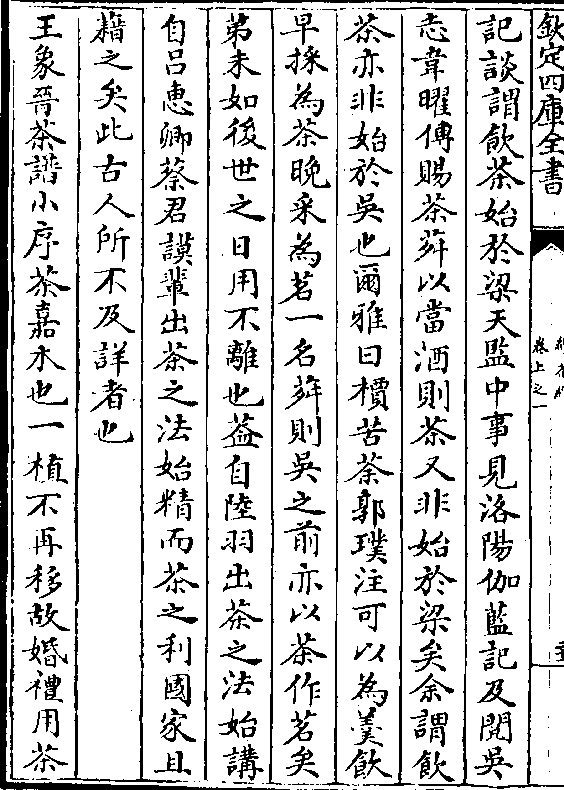 欽定四庫全書
卷上之一
記談謂飲茶始於梁天監中事見洛陽伽藍記及閱吳
志韋曜傳賜茶荈以當酒則茶又非始於梁矣余謂飲
茶亦非始於吳也爾雅曰檟苦荼郭璞注可以為羮飲
早採為茶晚采為茗一名荈則吳之前亦以茶作茗矣
第未如後世之日用不離也葢自陸羽出茶之法始講
自吕惠卿蔡君謨輩出茶之法始精而茶之利國家且
藉之矣此古人所不及詳者也
王象晉茶譜小序茶嘉木也一植不再移故婚禮用茶